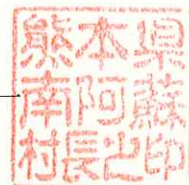 熊本県
南阿蘇
村長之印